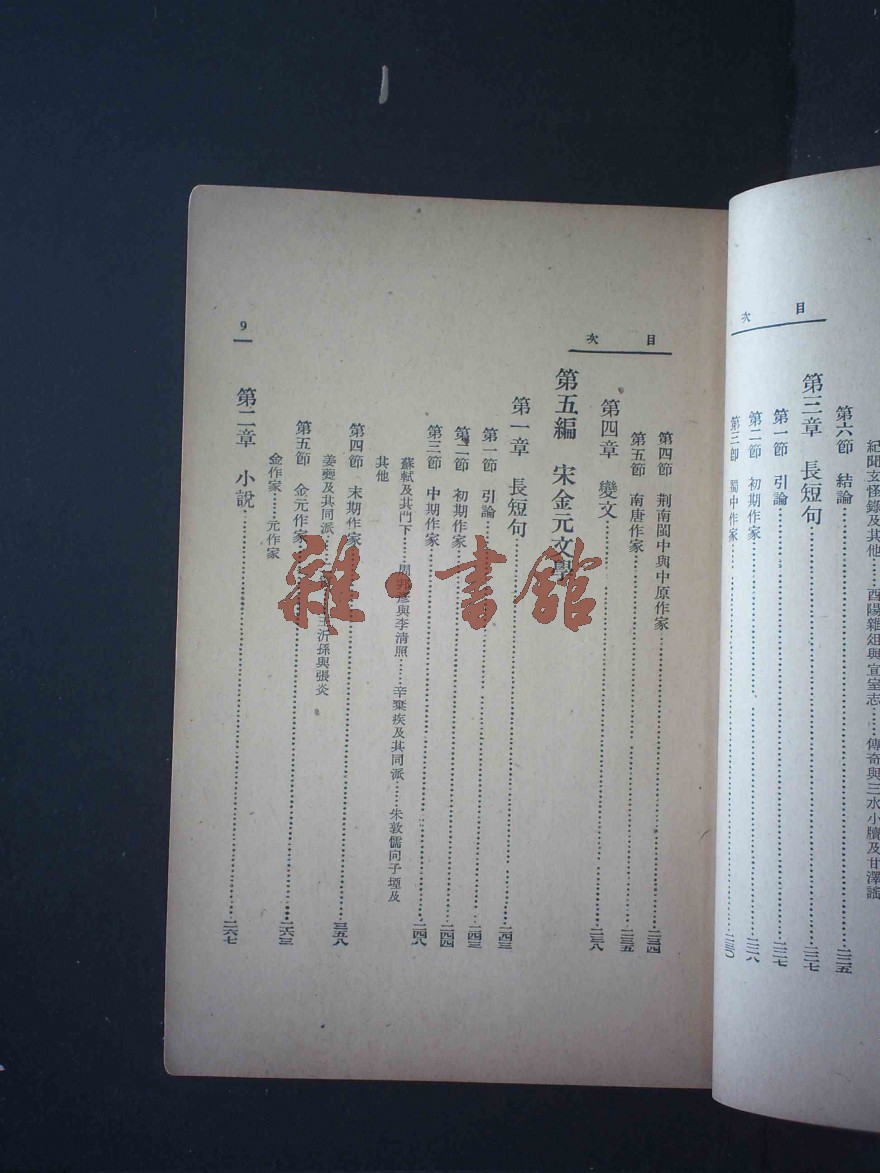 紀聞玄怪錄及其他……酉陽雜俎與宣室志……傳奇與三水小牘及甘澤謠
第六節 結論……二二五
第三章 長短句……二二七
第一節 引論……二二七
第二節 初期作家……二二八
第三節 蜀中作家……二三〇
目次
目次
第四節 荆南閩中與中原作家……二三四
第五節 南唐作家……二三五
第四章 變文……二三八
第五編 宋金元文學
第一章 長短句……二四三
第一節 引論……二四三
第二節 初期作家……二四四
第三節 中期作家……二四八
蘇軾及其門下……周邦彥與李清照……辛棄疾及其同派……朱敦儒向子堙及
其他
第四節 末期作家……二五八
姜夔及其同派……王沂孫與張炎
第五節 金元作家……二六三
金作家……元作家
第二章 小說……二六七
9
雜·書館